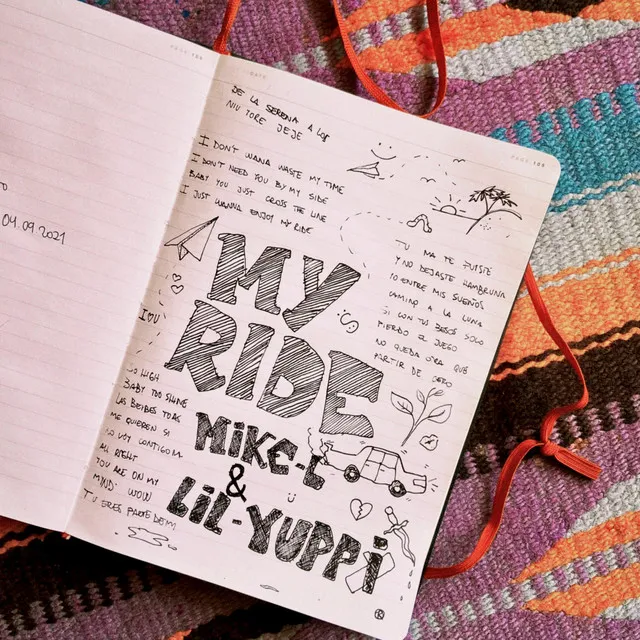 04.09.2021
DE LA SERENA A
I DON'T WANA WASTE MY TIME
I DON'T NEED YOU BY MY SIDE
BABY YOU JUST CROSS THE LINE
I JUST WANNA ENJOY MY RIDE
MY
RIDE
I❤U
TU MA TE FUISTE
Y NO DEJASTE HAMBRUNA
YO ENTRE MIS SUEÑOS
CAMINO A LA LUNA
SI CON TUS BESOS SOLO
PIERDO EL JUEGO
NO QUEDA OTRA QUE
PARTIR DE CERO
SO HIGH
BABY TOO SHINE
LAS BEIBES TOAS
ME QUIEREN SI
YO VOY CONTIGO MA
ALL RIGHT
YOU ARE ON MY
MIND. WOW
TU ERES PARTE DE MI
MIKE-L
&
LIL-YUPPI